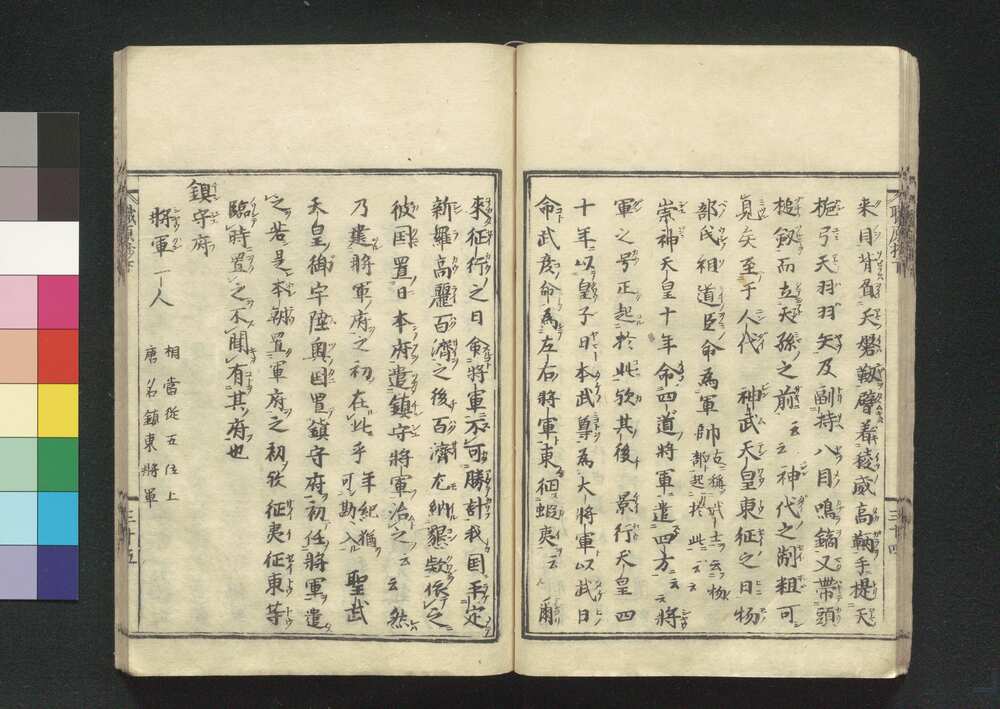 来目背負天磐靫臂着稜威高鞆手提天
梔弓天羽羽矢及副持八目鳴鏑又帶頭
槌劔而立天孫之前云云神代之制粗可
見矣至于人代 神武天皇東征之日物
部氏祖道臣命為軍帥古稱武士云物部起於此云云
崇神天皇十年命四道將軍遣四方云云將
軍之号正起於此欤其後 景行天皇四
十年以皇子日本武尊為大將軍以武日
命武彦命為左右將軍東征蝦夷云云 爾
職原抄下
三十四
来征行之日命將軍不可勝計我国平定
新羅高麗百濟之後百濟尤納懇欵依之
彼国置日本府遣鎮守將軍治之云云然
乃遣將軍府之初在此乎年紀猶可勘入 聖武
天皇御宇陸奥国置鎮守府初任將軍遣
之若是本朝置軍府之初欤征夷征東等
臨時置之不聞有其府也
鎮守府
將軍一人
相當從五位上
唐名鎮東將軍
職原抄下
三十五